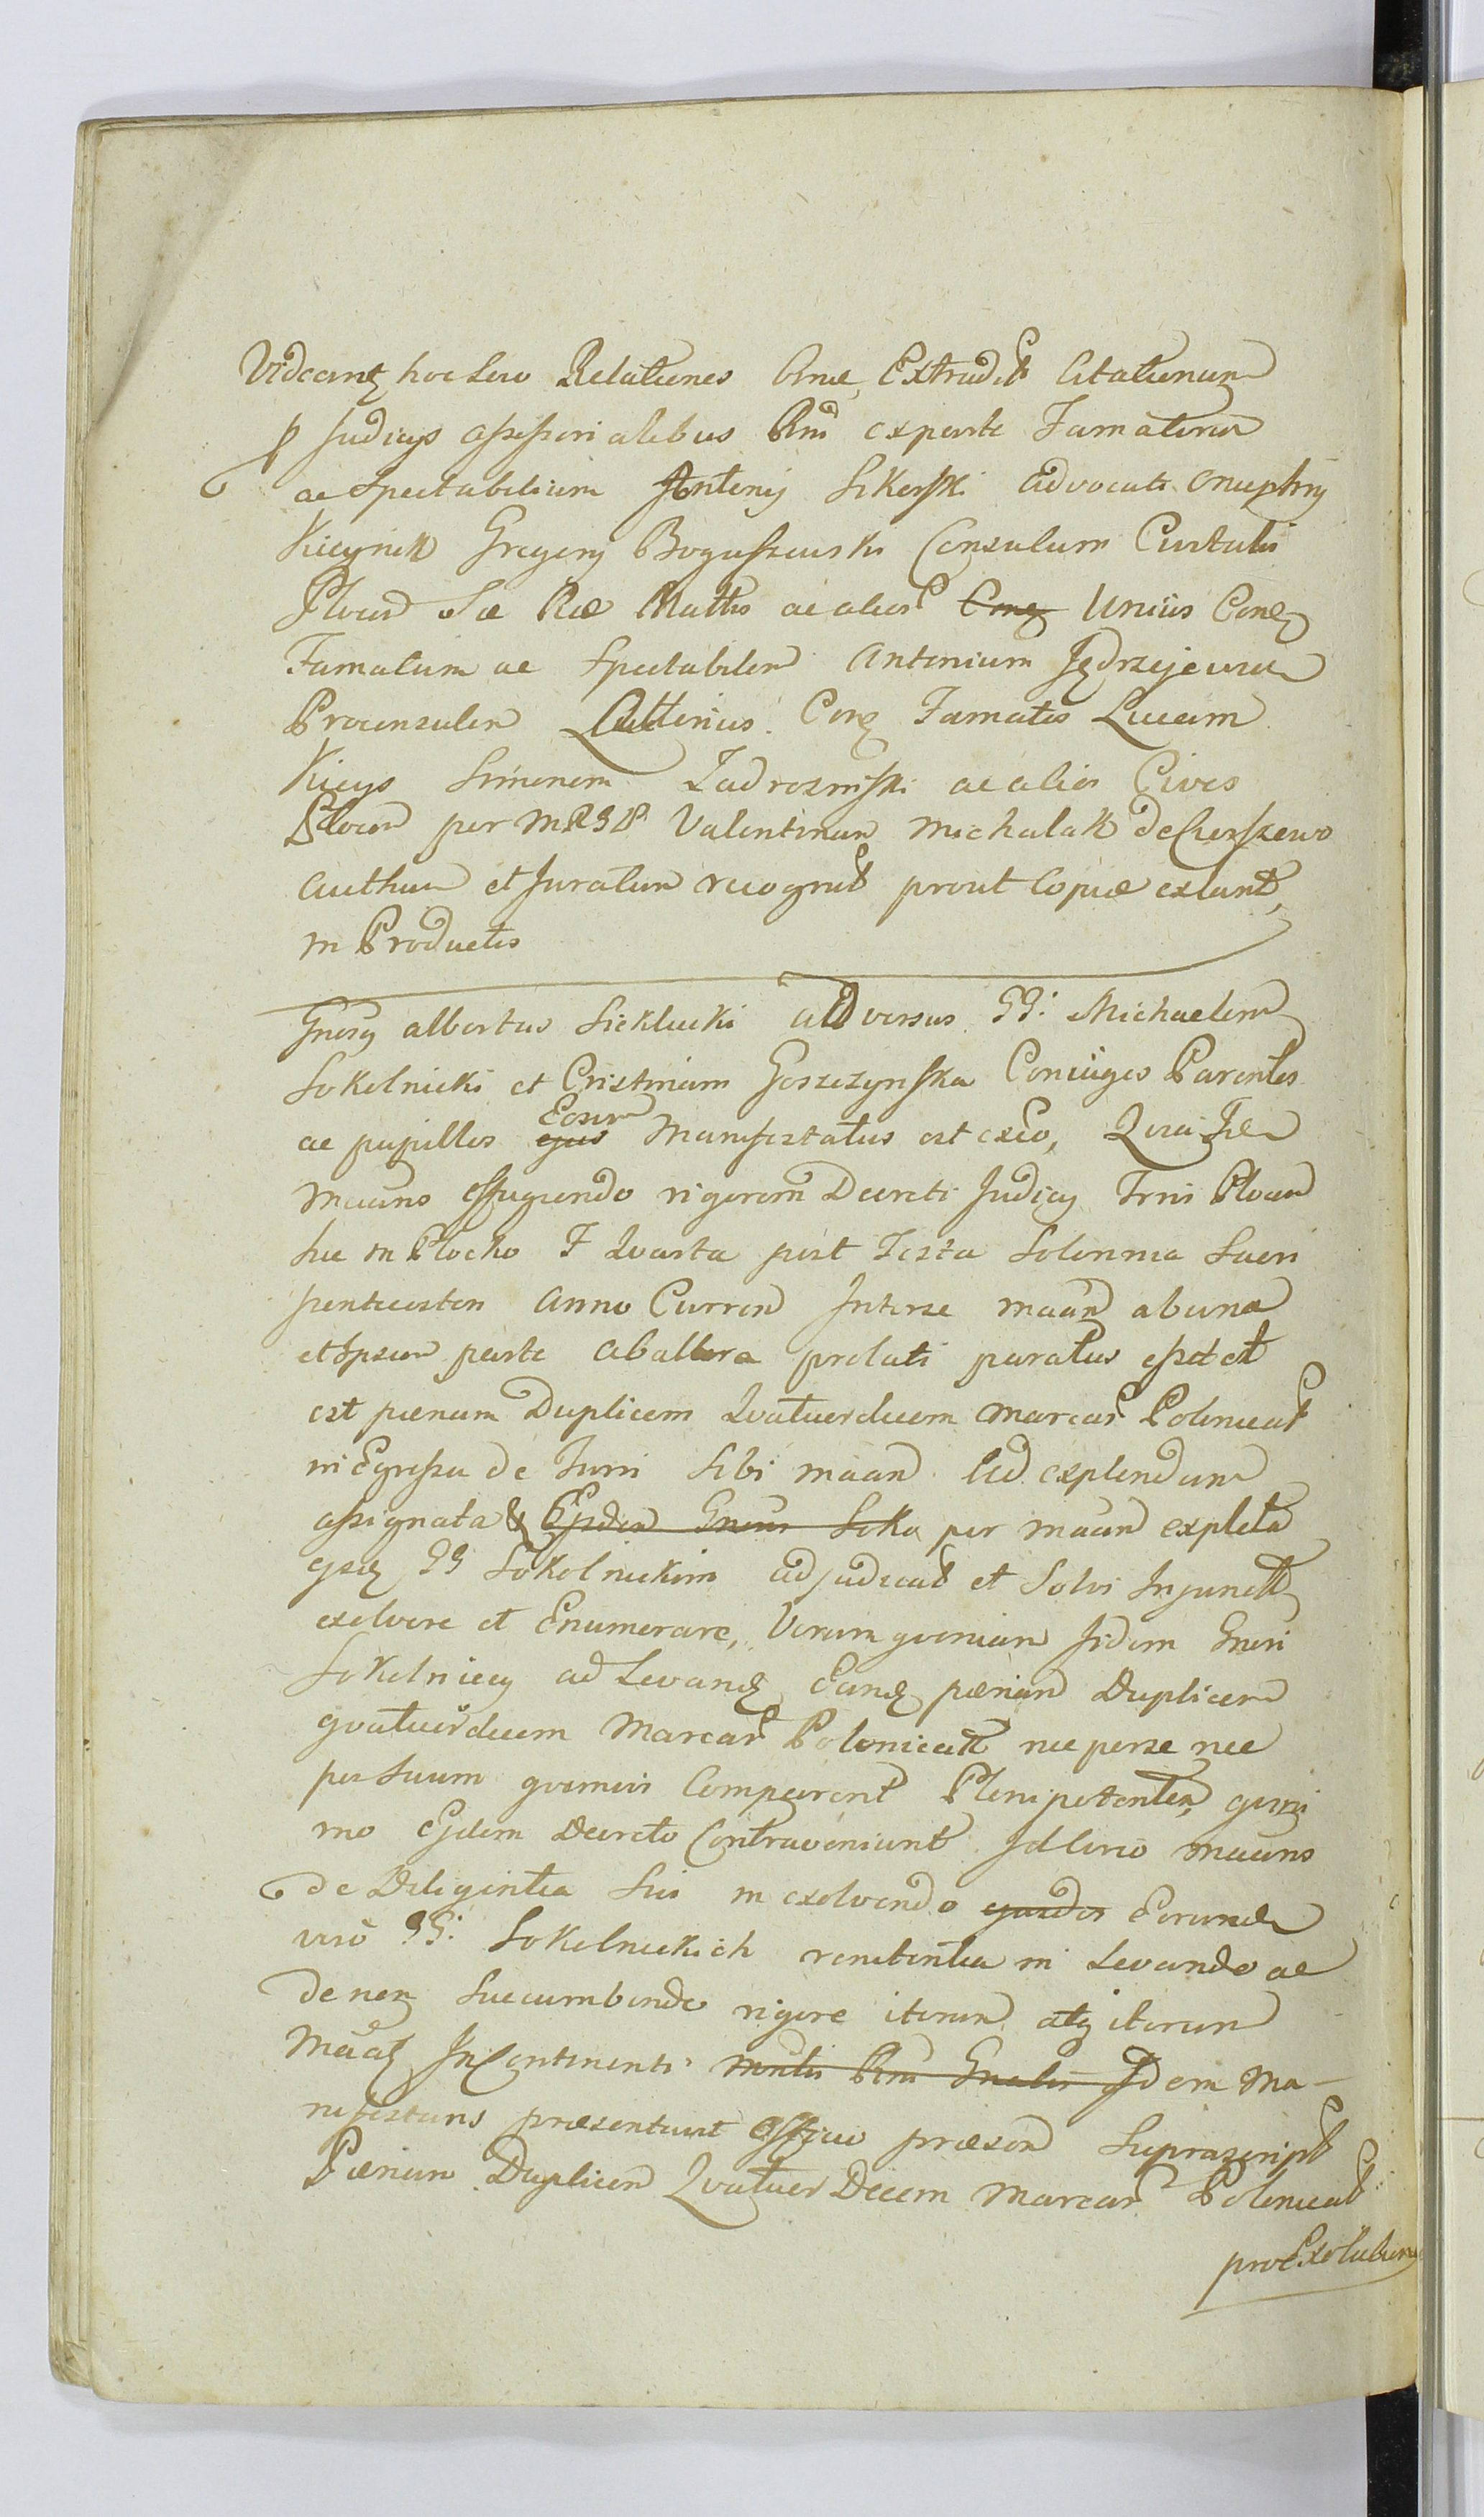 Videantz hoc Loco Relationes Omē Extradit Citationum
p Judicys assessorialibus Rni exparte Famatorum
ac Spectabilium Antonij Sikorski advocati Onuphrij
Kicynik Gregorij Boguszewski Consulum Civitatis
Plocen Sæ Ræ Mattis ac alior Conz Unius Conz
Famatum ac Spectabilem Antonium Jędrzejewicz
Proconsulem Alterius Conz Famatos Lucam
Kicys Simonem Zadrozniski ac alios Cives
Plocen per MRGP Valentinum Michalak de
authum et Juratum recognit prout Copiæ extant
in Productis
Gnosg albertus Sieklucki adversus GG: Michaelem
Sokolnicki et Cristinam Goszczynska Coniuges Parentes
ac pupillos ejus Eorum Manifestatus est ex eo, Quia
maūns effugiendo rigorem Decreti Judicy Trnis Plocen
hic in Plocko F Quarta post Festa Solennia Sacri
pentecosten Anno Curren Interse maān ab una
et Ipsum parte ab altera prolati paratus esset et
est pœnam Duplicem Quatuordecem Marcar Polonicat
in Egressu de Turri sibi maān ad explendum
assignata & Ejsdem Gnosis Soko per maān expleta
GG Sokolnickim adjudicat et Solvi Injunct
exolvere et Enumerare, Verum quoniam Iidem Gnosi
Sokolniccy ad Levand Eand pœnam Duplicem
quatuordecem Marcar Polonicatt nec per se nec
per Suum quemvis Comparent Plenipotentem, quini
mo Ejdem Decreto Contraveniunt Idcirco maāns
de Diligentia sui in exolvendo ejusdem Eorunde
vero GG: Sokolnickich renitentia in Levando ac
de nonz Succumbendo rigore iterum atq iterum
Maāt In Continenti Idem Ma-
nifestans præsentavit Officio præsen Suprascript
Pœnam Duplicem Quatuor Decem Marcar Polonicat
pro Exolutione